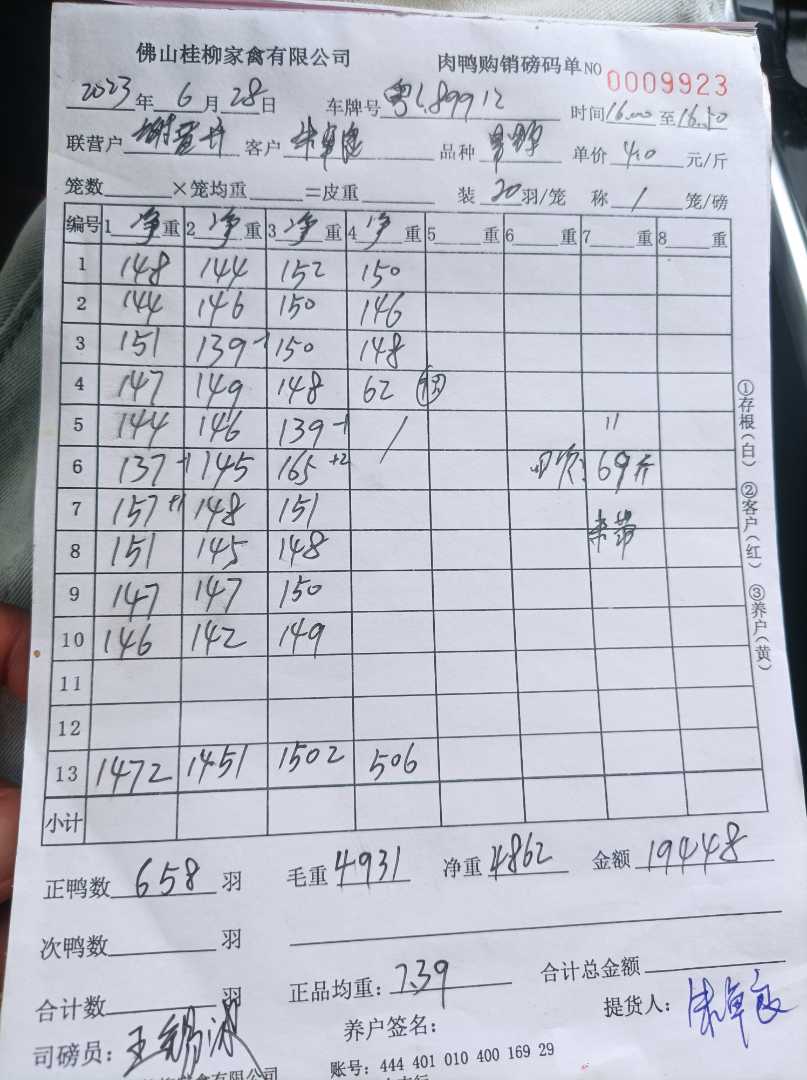 佛山桂柳家禽有限公司 肉鸭购销磅码单 NO 0009923
2023年 6月 28日 车牌号 粤L89912 时间16:00至16:50
联营户 客户 朱卓良 品种 单价 4.0 元/斤
笼数 ×笼均重 =皮重 装 20 羽/笼 称 / 笼/磅
编号 1 净 重 2 净 重 3 净 重 4 净 重 5 重 6 重 7 重 8 重
1 148 144 152 150
2 144 146 150 146
3 151 139 -1 150 148
4 147 149 148 62
5 144 146 139 -1 / 11
6 137 -1 145 165 +2 69斤
7 157 +1 148 151
8 151 145 148
9 147 147 150
10 146 142 149
11
12
13 1472 1451 1502 506
小计
①存根(白) ②客户(红) ③养户(黄)
正鸭数 658 羽 毛重 4931 净重 4862 金额 19448
次鸭数 羽
合计数 羽 正品均重: 7.39 合计总金额
司磅员: 王锡 养户签名: 提货人: 朱卓良
家禽有限公司 账号: 444 401 010 400 169 29